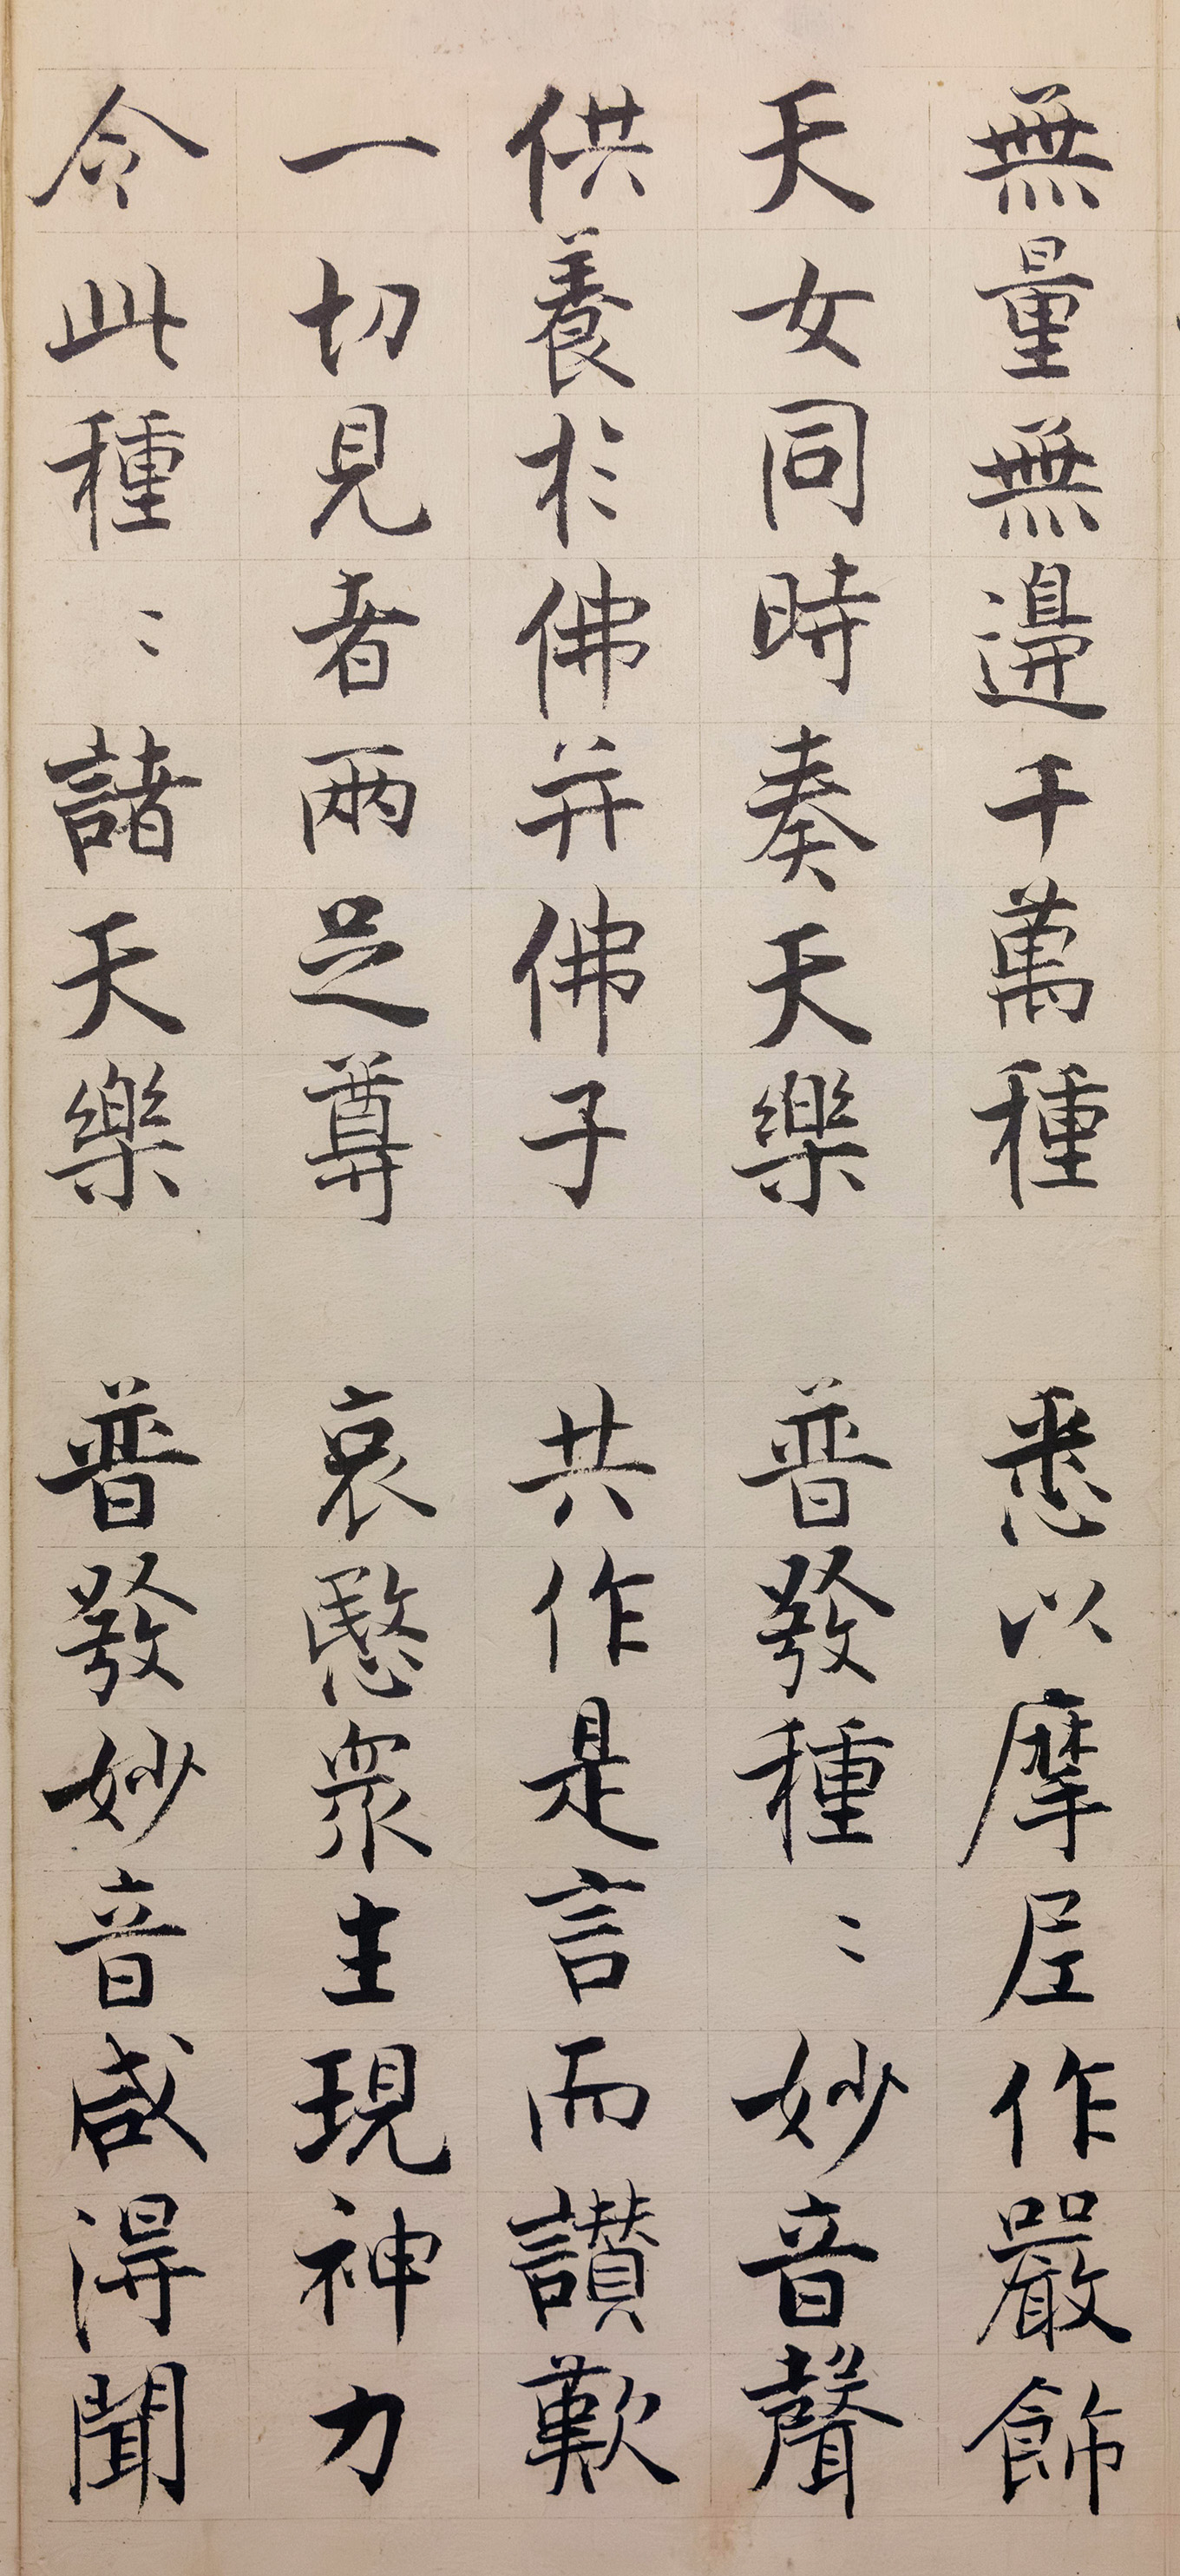 無量無邊千萬種 悉以摩尼作嚴飾
天女同時奏天樂 普發種〻妙音聲
供養於佛并佛子 共作是言而讃歎
一切見者兩足尊 哀愍衆生現神力
令此種〻諸天樂 普發妙音咸得聞